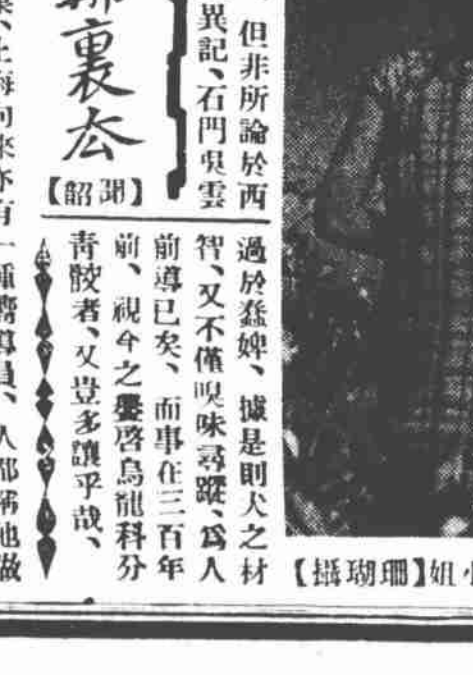 小姐【珊瑚攝】
但非所論於西
異記、石門吳雲
過於蠢婢、據是則犬之材
智、又不僅嗅味尋蹤、爲人
前導已矣、而事在三百年
前、視今之啓烏龍科分
靑骹者、又豈多讓乎哉、
裏
上海向來亦有一種嚮導員、人都稱他做